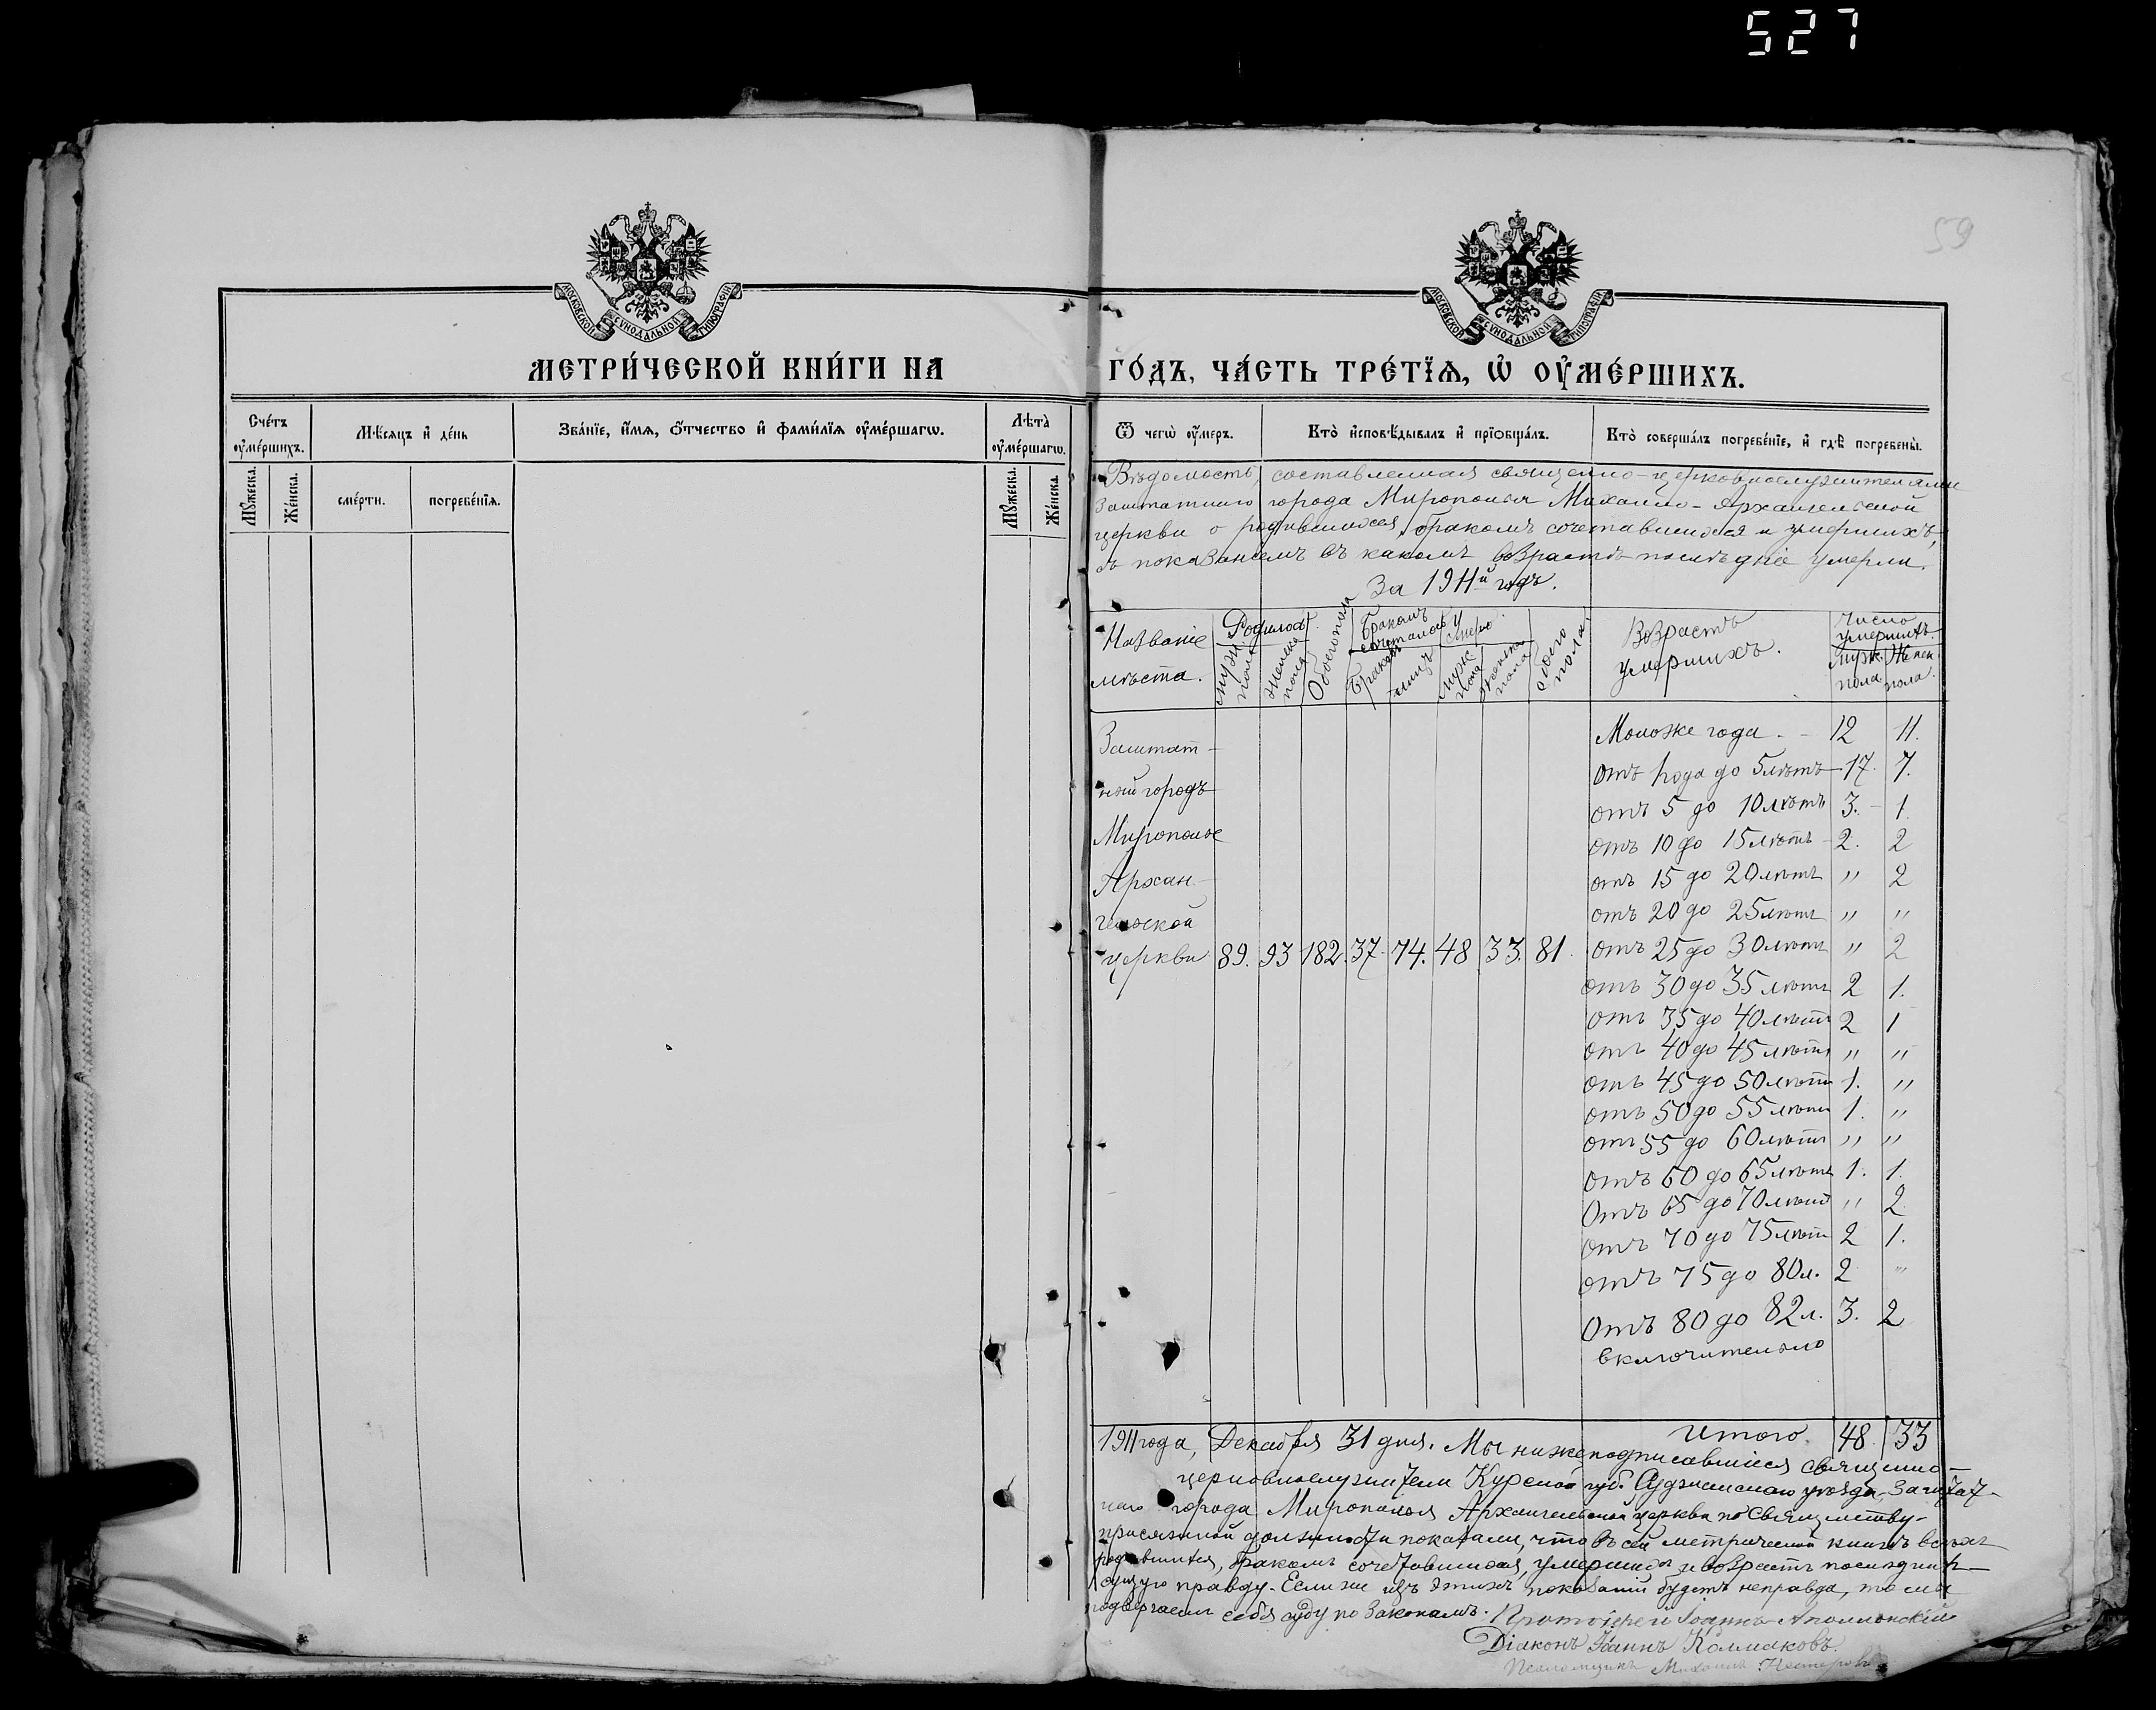 527
59
МОСКОВСКОЙ СѴНОДАЛЬНОЙ ТИПОГРАФІИ
МОСКОВСКОЙ СѴНОДАЛЬНОЙ ТИПОГРАФІИ
МЕТРИ́ЧЕСКОЙ КНИ́ГИ НА ГО́ДЪ, ЧА́СТЬ ТРЕ́ТЇѦ, Ѡ ОУ҆МЕ́РШИХЪ.
Сче́тъ оу҆ме́ршихъ.
Мѣ́сѧцъ и҆ де́нь
Зва́нїе, и҆́мѧ, ѻ҆́тчество и҆ фами́лїѧ оу҆ме́ршагѡ.
Лѣ̑та̀ оу҆ме́ршагѡ.
Ѿ чегѡ̀ оу҆́меръ.
Кто̀ и҆сповѣ́дывалъ и҆ прїѻбща́лъ.
Кто̀ соверша́лъ погребе́нїе, и҆ гдѣ̀ погребены̀.
Мꙋ́жеска.
Же́нска.
сме́рти.
погребе́нїѧ.
Мꙋ́жеска.
Же́нска.
Вѣдомость, составленная священно-церковнослужителями
Заштатнаго города Мирополья Михаило-Архангельской
церкви о родившихся, бракомъ сочетавшихся и умершихъ,
съ показаніемъ въ какомъ возрастѣ послѣдніе умерли.
За 1911й годъ.
Названіе мѣста.
Родилось.
Муж. пола
Женска пола
Обоего пола
Бракомъ сочеталось
Браковъ
лицъ
Умерло.
Муж. пола
Женска пола
Обоего пола.
Возрастъ умершихъ.
Число умершихъ.
Муж. пола
Женск. пола.
Заштат-
ный городъ
Мирополье
Архан-
гельской
церкви 89. 93 182. 37. 74. 48 33. 81.
Моложе года. - 12 11.
Отъ 1 года до 5 лѣтъ - 17. 7.
отъ 5 до 10 лѣтъ 3. - 1.
отъ 10 до 15 лѣтъ - 2. 2
отъ 15 до 20 лѣтъ " 2
отъ 20 до 25 лѣтъ " "
отъ 25 до 30 лѣтъ " 2
отъ 30 до 35 лѣтъ 2 1.
отъ 35 до 40 лѣтъ 2 1
отъ 40 до 45 лѣтъ " "
отъ 45 до 50 лѣтъ 1. "
отъ 50 до 55 лѣтъ 1. "
отъ 55 до 60 лѣтъ " "
отъ 60 до 65 лѣтъ 1. 1.
Отъ 65 до 70 лѣтъ " 2
отъ 70 до 75 лѣтъ 2 1.
отъ 75 до 80 л. 2 "
Отъ 80 до 82 л. 3. 2
включительно
Итого 48. 33
1911 года, Декабря 31 дня. Мы нижеподписавшіеся священно-
церковнослужители Курской губ. Суджанскаго уѣзда, Заштат-
наго города Мирополья Архангельской церкви по Священству-
присяжной должности показали, что въ сей метрической книгѣ всѣхъ
родившихся, бракомъ сочетавшихся, умершихъ и возрастъ послѣднихъ
сущую правду. Если же изъ этихъ показаній будетъ неправда, то мы
подвергаемъ себя суду по Законамъ. Протоіерей Іоаннъ Аполлонскій
Діаконъ Іоаннъ Колмаковъ.
Псаломщикъ Михаилъ Нестеровъ